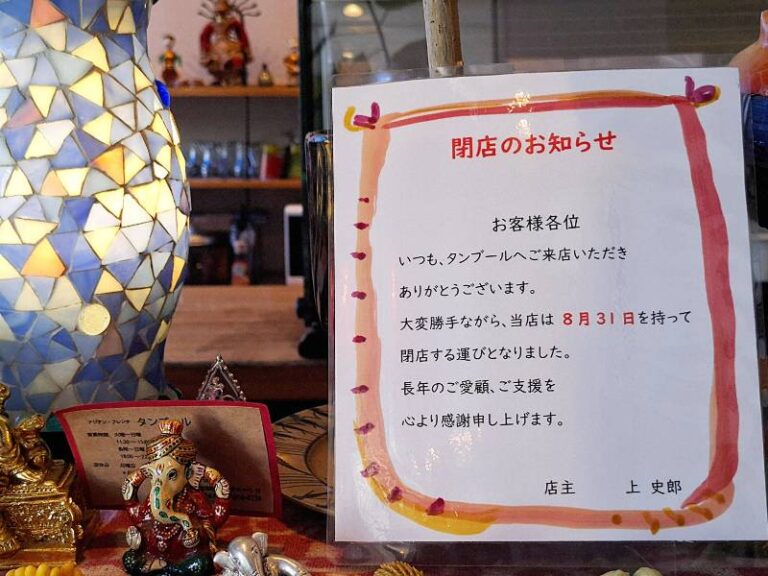 閉店のお知らせ
お客様各位
いつも、タンブールへご来店いただき
ありがとうございます。
大変勝手ながら、当店は 8月31日を持って
閉店する運びとなりました。
長年のご愛顧、ご支援を
心より感謝申し上げます。
店主 上 史郎
タンブール
営業時間
定休日 月曜日